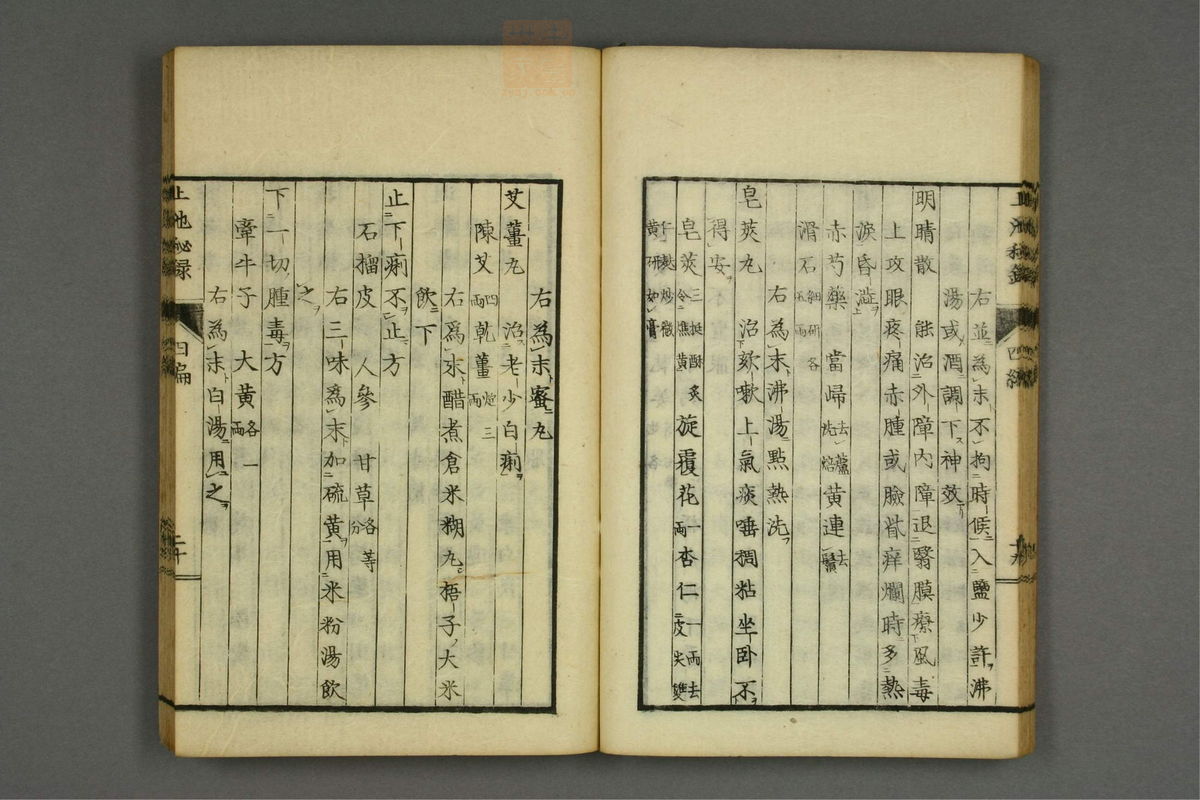 右並為末不拘時候入鹽少許沸
湯或酒調下神效
明睛散 能治外障內障退翳膜療風毒
上攻眼疼痛赤腫或臉眥痒爛時多熱
淚昏澁
赤芍藥 當歸去蘆洗焙黃連去鬚
滑石細研各五兩
右為末沸湯點熱洗
皂莢丸 治欬嗽上氣痰唾稠粘坐卧不
得安
皂莢三挺酥炙令焦黃旋覆花一兩杏仁一兩去皮尖雙
仁麩炒微黃研如膏
右為末蜜丸
艾薑丸 治老少白痢
陳艾四兩乾薑炮三兩
右為末醋煮倉米糊丸梧子大米
飲下
止下痢不止方
石榴皮 人參 甘草各等分
右三味為末加硫黃用米粉湯飲
之
下一切腫毒方
牽牛子 大黃各一兩
右為末白湯用之
四編
二十